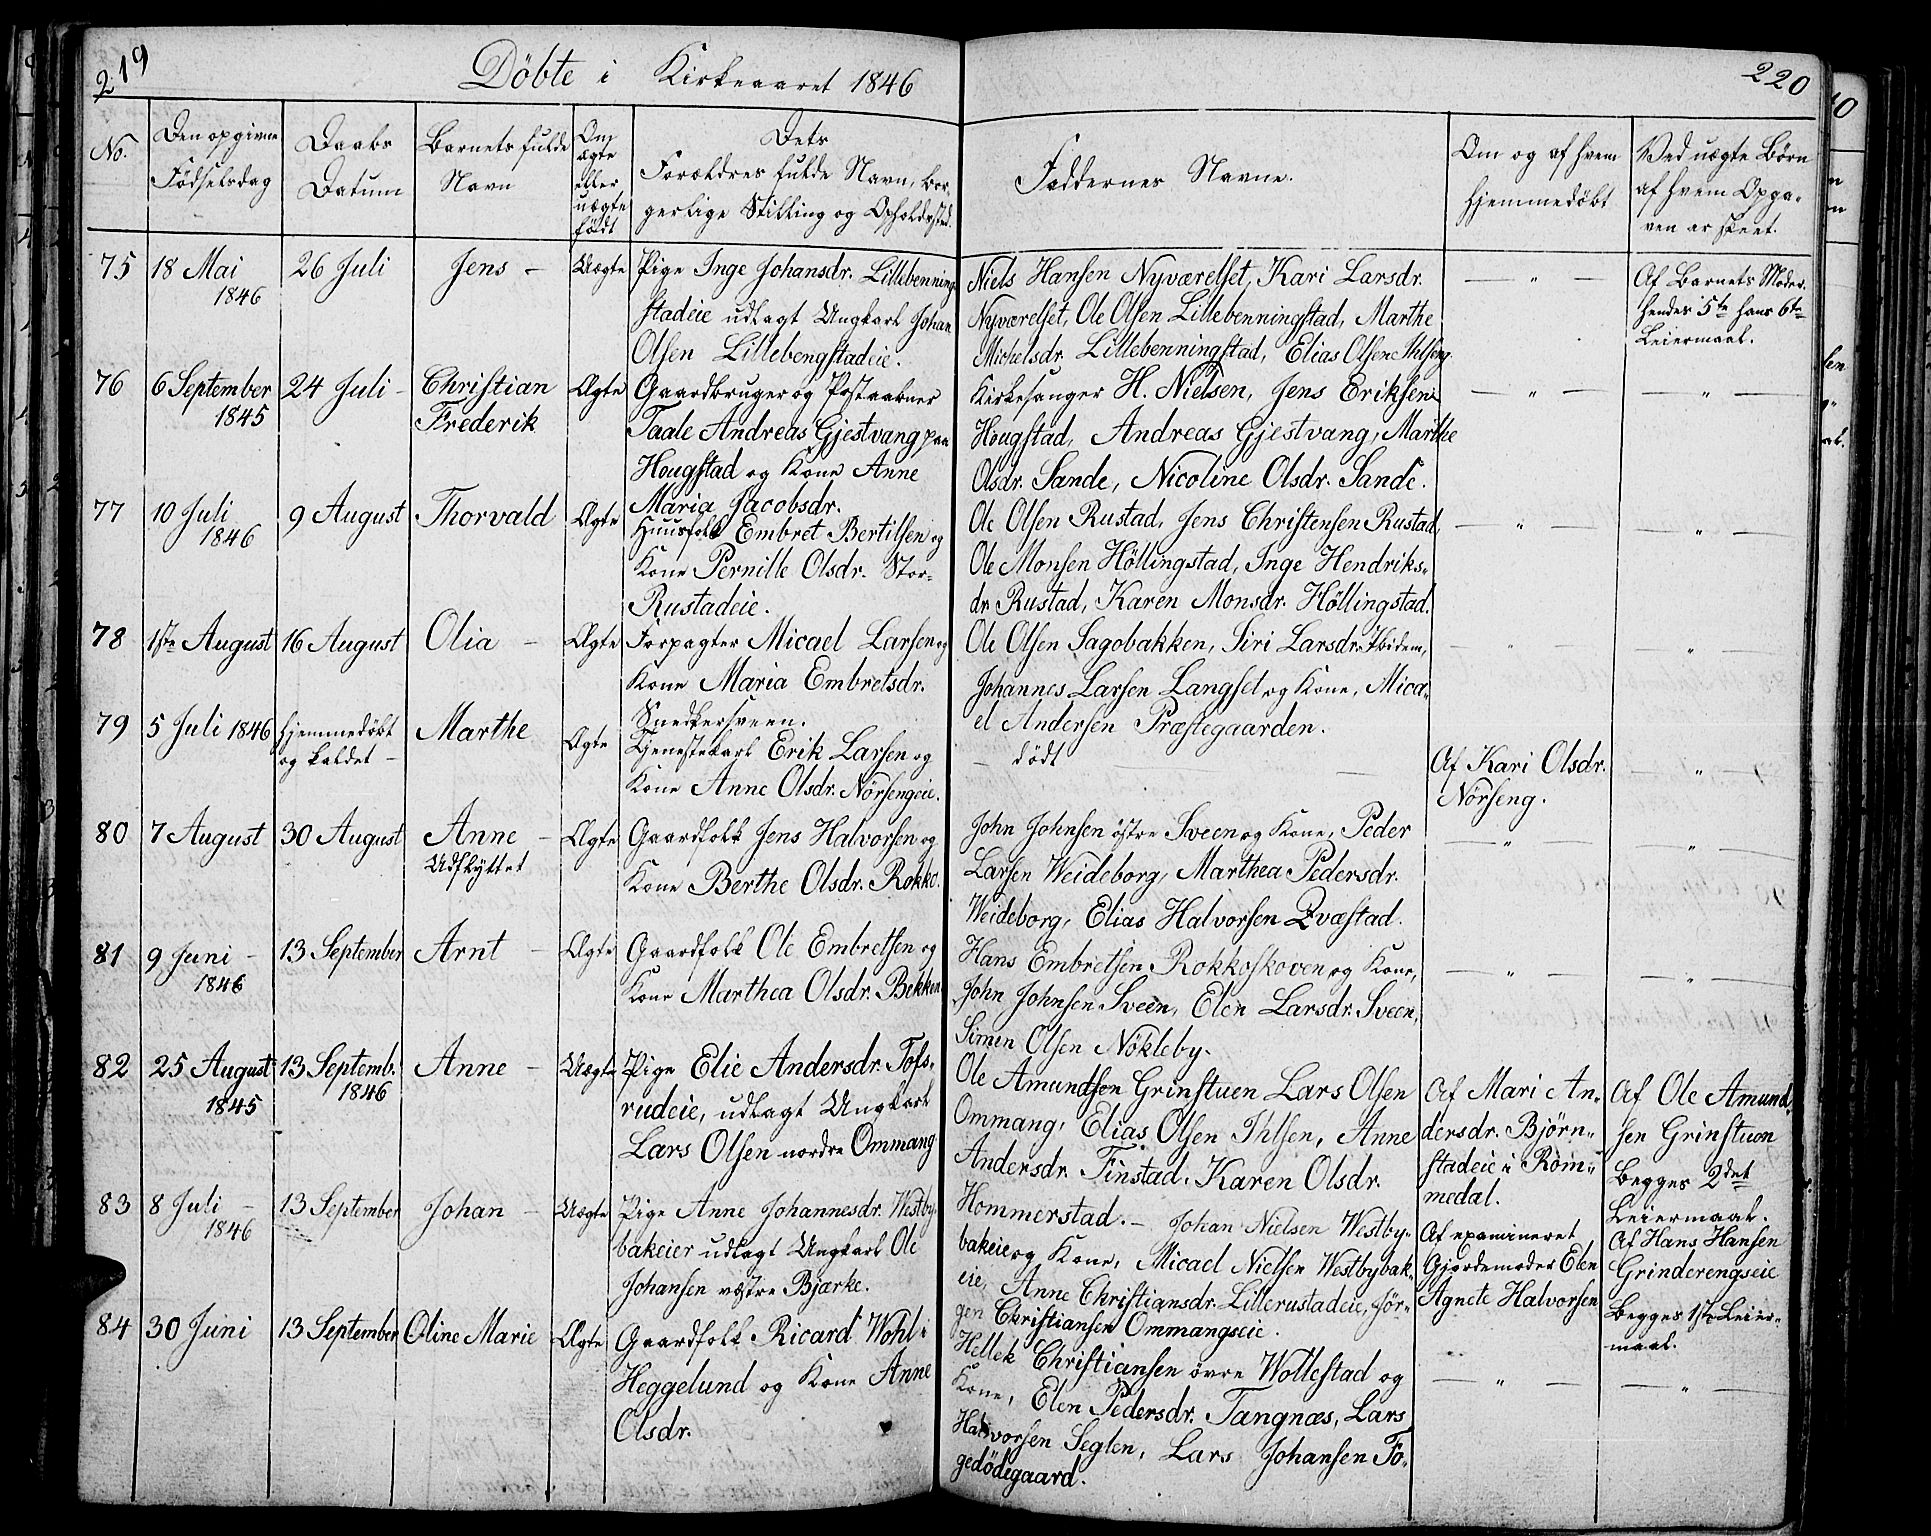 219
Döbte i Kirkeaaret 1846
220
No.
Den opgivne
Födselsdag
Daabs
Datum
Barnets fulde
Navn
Om
ægte
eller
uægte
födt
Dets
Forældres fulde Navn, bor-
gerlige Stilling og Opholdssted.
Faddernes Navne.
Om og af hvem
hjemmedöbt
Ved uægte Börn
af hvem Opga-
ven er skeet.
75
18 Mai
1846
26 Juli
Jens -
Uægte
Pige Inge Johansdr. Lillebenning-
stadeie udlagt Ungkarl Johan
Olsen Lillebengstadeie.
Niels Hansen Nyværelset, Kari Larsdr.
Nyværelset, Ole Olsen Lillebenningstad, Marthe
Michelsdr. Lillebenningstad, Elias Olsen Ihlseng.
— " —
Af Barnets Moder.
hendes 5te hans 6te
Leiermaal.
76
6 September
1845
24 Juli -
Christian
Frederik
Ægte
Gaardbruger og Postaabner
Taale Andreas Gjestvang paa
Hougstad og Kone Anne
Maria Jacobsdr.
Kirkesanger H. Nielsen, Jens Eriksen
Hougstad, Andreas Gjestvang, Marthe
Olsdr. Sande, Nicoline Olsdr. Sande.
— " —
— " —
77
10 Juli
1846
9 August
Thorvald
Ægte
Huusfolk Embret Bertilsen og
Kone Pernille Olsdr. Stor-
Rustadeie.
Ole Olsen Rustad, Jens Christensen Rustad,
Ole Monsen Höllingstad, Inge Hendriks-
dr. Rustad, Karen Monsdr. Höllingstad.
— " —
— " —
78
1ste August
16 August
Olia -
Ægte
Forpagter Micael Larsen og
Kone Maria Embretsdr.
Snedkersveen.
Ole Olsen Sagobakken, Siri Larsdr. Ibidem,
Johannes Larsen Langset og Kone, Mica-
el Andersen Præstegaarden.
— " —
— " —
79
5 Juli 1846
hjemmedöbt
og kaldet -
Marthe
Ægte
Tjenestekarl Erik Larsen og
Kone Anne Olsdr. Nörsengeie.
— dödt —
Af Kari Olsdr.
Nörseng.
— " —
80
7 August
30 August
Anne -
Udflyttet
Ægte
Gaardfolk Jens Halvorsen og
Kone Berthe Olsdr. Rokko.
John Johnsen östre Sveen og Kone, Peder
Larsen Weideborg, Marthea Pedersdr.
Weideborg, Elias Halvorsen Qvæstad.
— " —
— " —
81
9 Juni -
1846
13 September
Arnt -
Ægte
Gaardfolk Ole Embretsen og
Kone Marthea Olsdr. Bekken
Hans Embretsen Rokkoskoven og Kone,
John Johnsen Sveen, Elen Larsdr. Sveen,
Simen Olsen Nökleby.
— " —
— " —
82
25 August
1845
13 Septemb.
1846
Anne -
Uægte
Pige Elie Andersdr. Tofs-
rudeie, udlagt Ungkarl
Lars Olsen nordre Ommang
Ole Amundsen Grinstuen Lars Olsen
Ommang, Elias Olsen Ihlsen, Anne
Andersdr. Finstad. Karen Olsdr.
Hommerstad. -
Af Mari An-
dersdr. Björn-
stadeie i Rom-
medal.
Af Ole Amund-
sen Grinstuen
begges 2det
Leiermaal.
83
8 Juli -
1846
13 September
Johan -
Uægte
Pige Anne Johannesdr. Westby-
bakeier udlagt Ungkarl Ole
Johansen vestre Bjerke.
Johan Nielsen Westby-
bakeie og Kone, Micael Nielsen Westbybak-
eie, Anne Christiansdr. Lillerustadeie, Jör-
gen Christiansen Ommangseie.
Af examineret
Gjordemoder Elen
Agnete Halvorsen
Af Hans Hansen
Grinderengseie
begges 1ste Leier-
maal.
84
30 Juni
13 September
Oline Marie
Ægte
Gaardfolk Ricard Wohl i
Heggelund og Kone Anne
Olsdr.
Hellek Christiansen övre Wollestad og
Kone, Elen Pedersdr. Tangnæs, Lars
Halvorsen Seglen, Lars Johansen Fo-
gedödegaard.
— " —
— " —